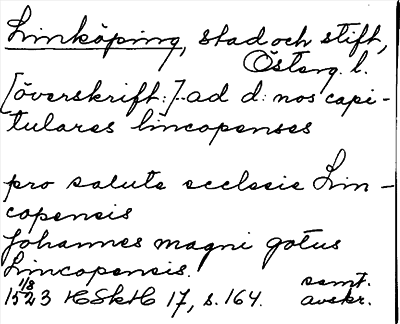 Linköping, stad och stift,
Österg. l.
[överskrift:]..ad d: nos capi-
tulares lincopenses
pro salute ecclesie Lin-
copensis
Johannes magni gotus
Lincopensis.
1/8 1523 HSkH 17, s. 164. samt. avskr.